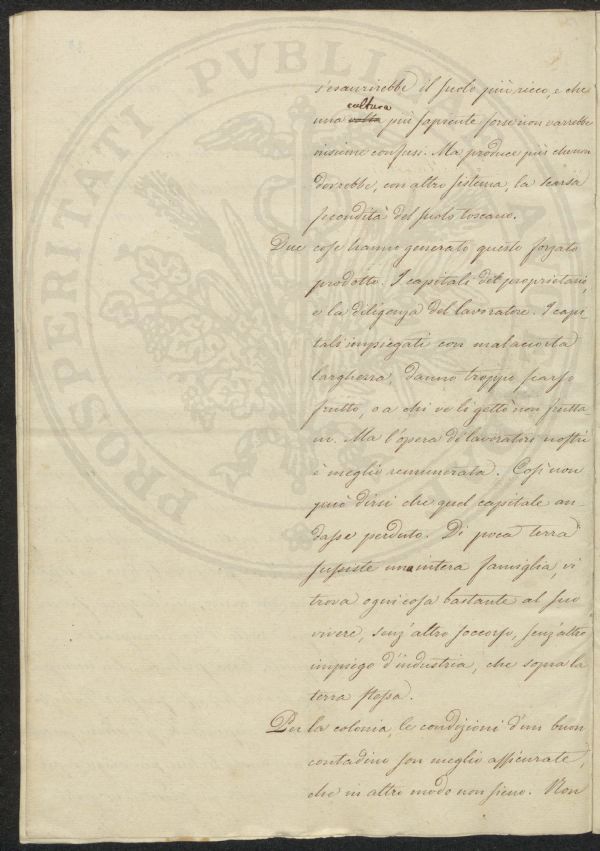 s'esaurirebbe il suolo più ricco, e che
cultura
una volta più sapiente forse non varrebbe
nissime confusi. Ma produce più che non
dovrebbe, con altro sistema, la scarsa
fecondità del suolo toscano.
Due cose hanno generato questo forzato
prodotto. I capitali del proprietario,
e la diligenza del lavoratore. I capi
tali impiegati con malaccorta
larghezza, danno troppo scarso
frutto, o a chi ve li gettò non frutta
no. Ma l'opera de' lavoratori nostri
è meglio remunerata. Così non
può dirsi che quel capitale an-
dasse perduto. Di poca terra
sussiste una intera famiglia, vi
trova ogni cosa bastante al suo
vivere, senz'altro soccorso, senz'altro
impiego d'industria, che sopra la
terra stessa.
Per la colonia, le condizioni d'un buon
contadino son meglio assicurate,
che in altro modo non sieno. Non
PROSPERITATI PVBLICAE